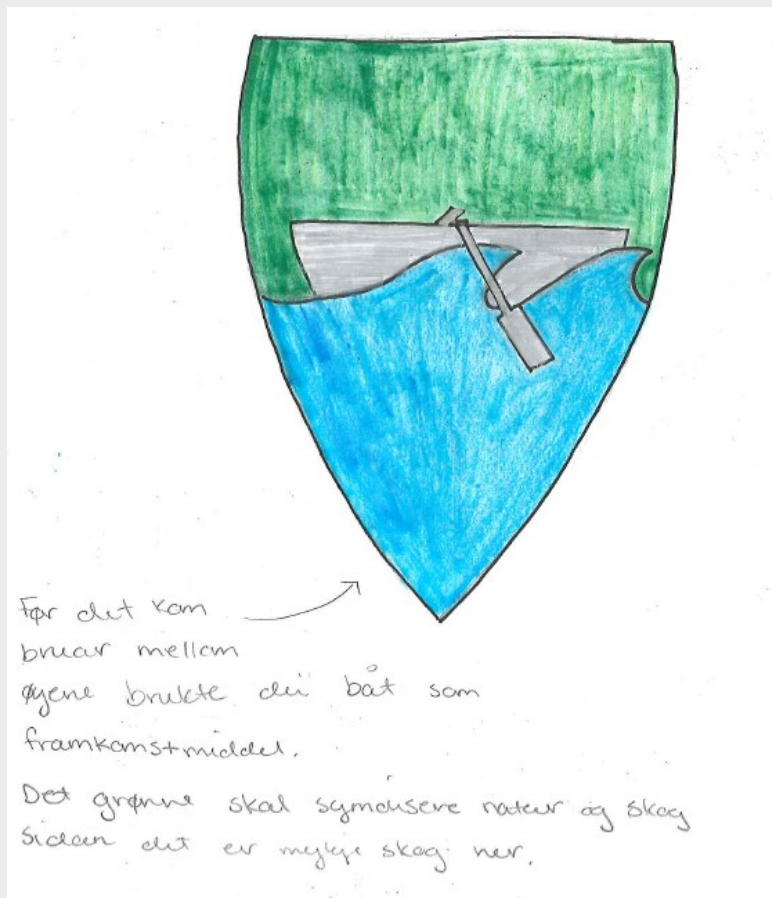 Før det kom
bruar mellom
øyene brukte dei båt som
framkomstmiddel.
Det grønne skal symolisere natur og skog
sidan det er mykje skog her.